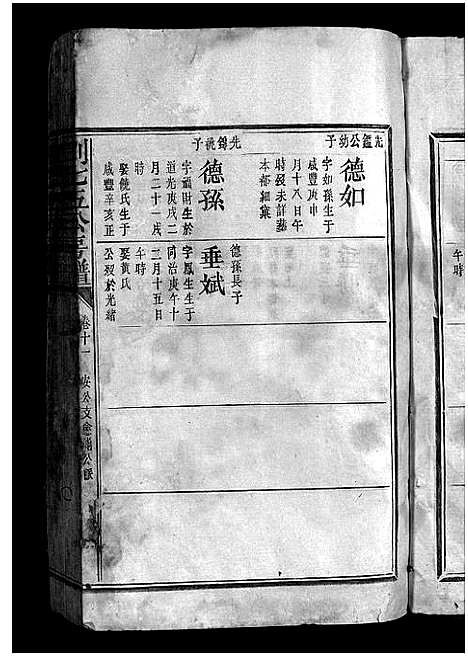 先鑑公幼子
德如
字如孫生于
咸豐庚申
月十八日午
時歿未詳葬
本都細窠
先錦祧子
德孫
字福財生於
道光庚戌二
月二十一戌
時
娶饒氏生于
咸豐辛亥正
德孫長子
垂斌
字鳳生生于
同治庚午十
二月十五日
午時
娶黃氏
公歿於光緒
劉七五公房譜
卷十一
安公支
公
午時